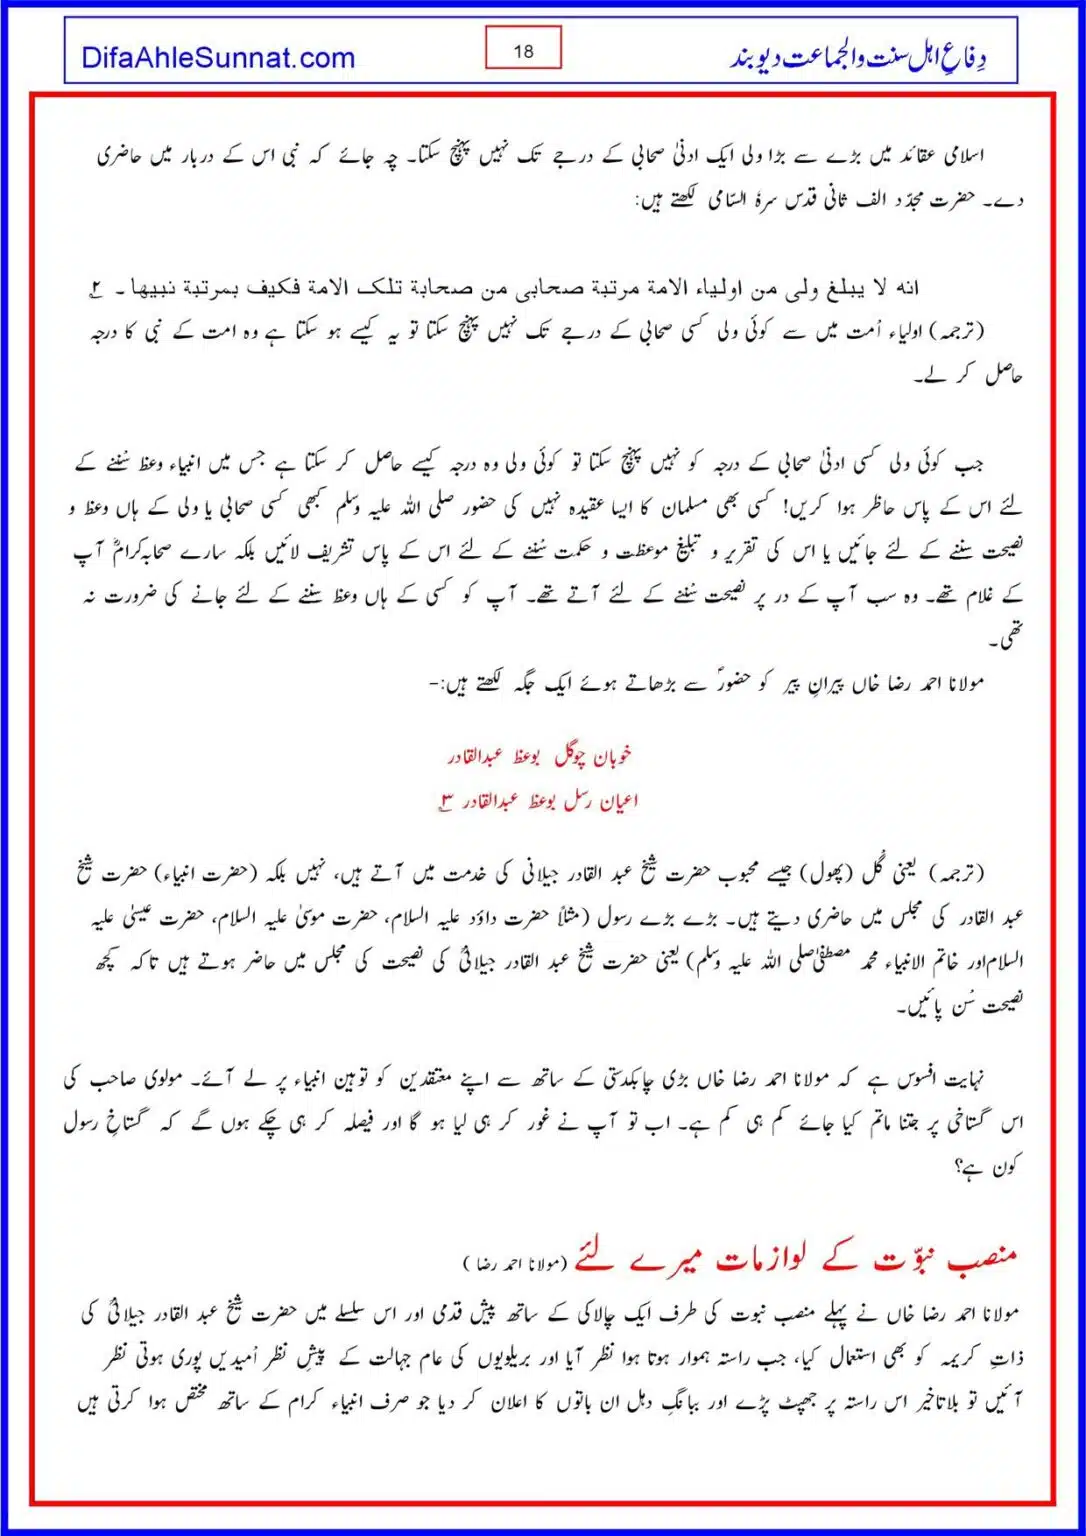 DifaAhleSunnat.com
18
دِفاعِ اہل سنت والجماعت دیوبند
اسلامی عقائد میں بڑے سے بڑا ولی ایک ادنیٰ صحابی کے درجے تک نہیں پہنچ سکتا۔ چہ جائے کہ نبی اس کے دربار میں حاضری
دے۔ حضرت مجدّد الف ثانی قدس سرہٗ السّامی لکھتے ہیں:
انه لا يبلغ ولى من اولياء الامة مرتبة صحابى من صحابة تلک الامة فکيف بمرتبة نبيها۔ ۲؎
(ترجمہ) اولیاء اُمت میں سے کوئی ولی کسی صحابی کے درجے تک نہیں پہنچ سکتا تو یہ کیسے ہو سکتا ہے وہ امت کے نبی کا درجہ
حاصل کر لے۔
جب کوئی ولی کسی ادنیٰ صحابی کے درجہ کو نہیں پہنچ سکتا تو کوئی ولی وہ درجہ کیسے حاصل کر سکتا ہے جس میں انبیاء وعظ سُننے کے
لئے اس کے پاس حاظر ہوا کریں! کسی بھی مسلمان کا ایسا عقیدہ نہیں کی حضور صلی اللہ علیہ وسلم کبھی کسی صحابی یا ولی کے ہاں وعظ و
نصیحت سننے کے لئے جائیں یا اس کی تقریر و تبلیغ موعظت و حکمت سُننے کے لئے اس کے پاس تشریف لائیں بلکہ سارے صحابہ کرامؓ آپ
کے غلام تھے۔ وہ سب آپ کے در پر نصیحت سُننے کے لئے آتے تھے۔ آپ کو کسی کے ہاں وعظ سننے کے لئے جانے کی ضرورت نہ
تھی۔
مولانا احمد رضا خاں پیرانِ پیر کو حضورؐ سے بڑھاتے ہوئے ایک جگہ لکھتے ہیں:-
خوبان چوگل بوعظ عبدالقادر
اعیان رسل بوعظ عبدالقادر ۳؎
(ترجمہ) یعنی گُل (پھول) جیسے محبوب حضرت شیخ عبد القادر جیلانی کی خدمت میں آتے ہیں، نہیں بلکہ (حضرت انبیاء) حضرت شیخ
عبد القادر کی مجلس میں حاضری دیتے ہیں۔ بڑے بڑے رسول (مثلاً حضرت داؤد علیہ السلام، حضرت موسیٰ علیہ السلام، حضرت عیسیٰ علیہ
السلام اور خاتم الانبیاء محمد مصطفیٰ صلی اللہ علیہ وسلم) یعنی حضرت شیخ عبد القادر جیلانیؒ کی نصیحت کی مجلس میں حاضر ہوتے ہیں تاکہ کچھ
نصیحت سُن پائیں۔
نہایت افسوس ہے کہ مولانا احمد رضا خاں بڑی چابکدستی کے ساتھ سے اپنے معتقدین کو توہین انبیاء پر لے آئے۔ مولوی صاحب کی
اس گستاخی پر جتنا ماتم کیا جائے کم ہی کم ہے۔ اب تو آپ نے غور کر ہی لیا ہو گا اور فیصلہ کر ہی چکے ہوں گے کہ گستاخِ رسول
کون ہے؟
منصب نبوّت کے لوازمات میرے لئے (مولانا احمد رضا)
مولانا احمد رضا خاں نے پہلے منصب نبوت کی طرف ایک چالاکی کے ساتھ پیش قدمی اور اس سلسلے میں حضرت شیخ عبد القادر جیلانیؒ کی
ذاتِ کریمہ کو بھی استعمال کیا، جب راستہ ہموار ہوتا ہوا نظر آیا اور بریلویوں کی عام جہالت کے پیشِ نظر اُمیدیں پوری ہوتی نظر
آئیں تو بلا تاخیر اس راستہ پر جھپٹ پڑے اور ببانگِ دہل ان باتوں کا اعلان کر دیا جو صرف انبیاء کرام کے ساتھ مختص ہوا کرتی ہیں